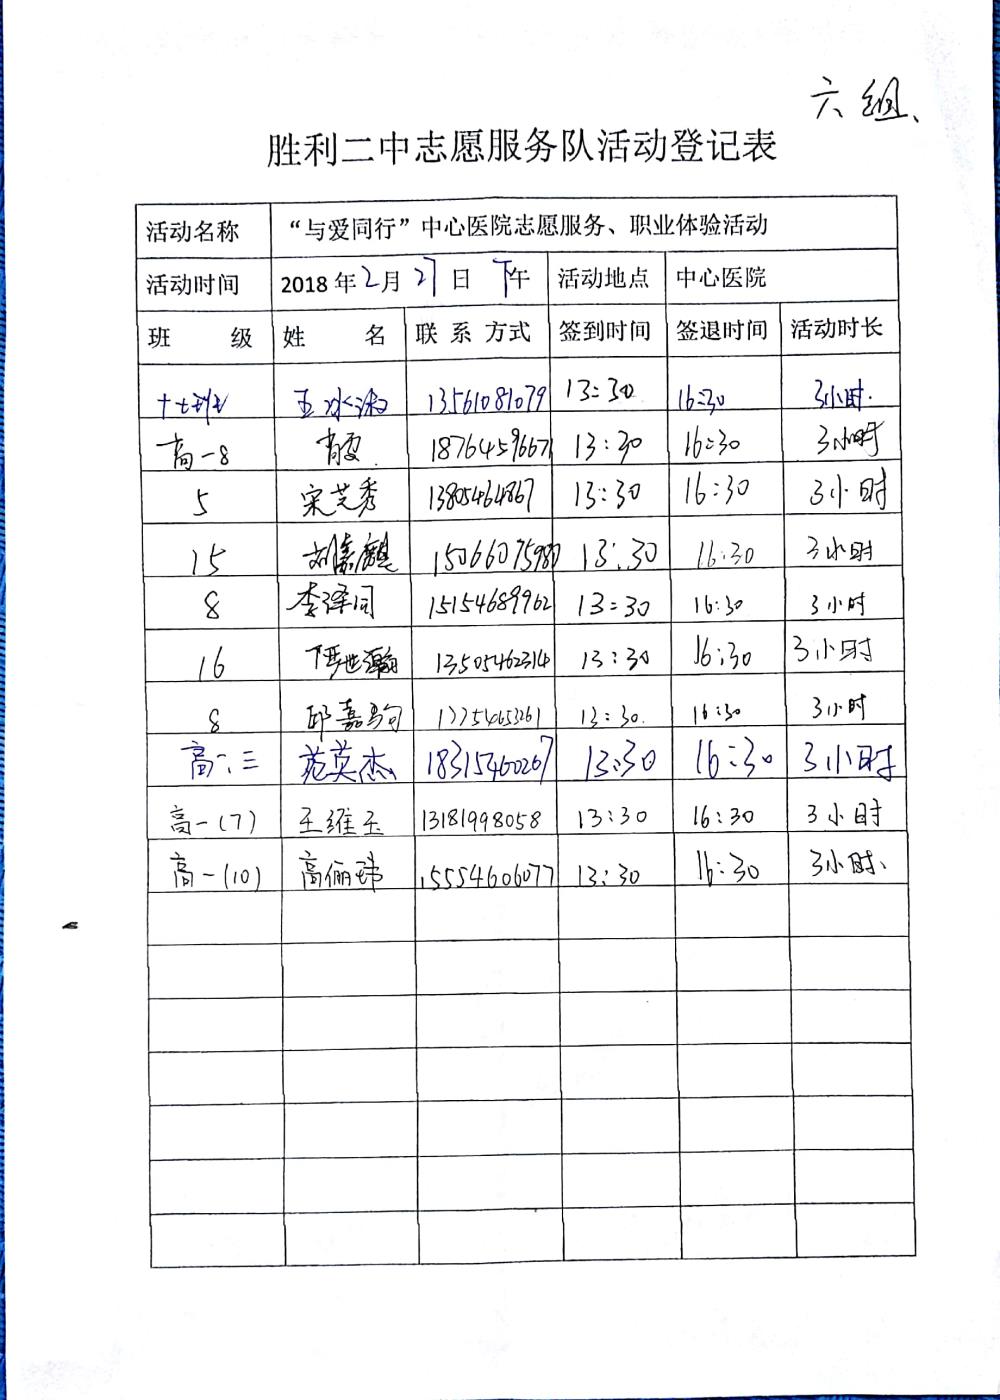 六组、
胜利二中志愿服务队活动登记表
活动名称 “与爱同行”中心医院志愿服务、职业体验活动
活动时间 2018年2月27日 下午 活动地点 中心医院
班 级 姓 名 联系方式 签到时间 签退时间 活动时长
十七班 王冰淑 13561081079 13:30 16:30 3小时.
高一8 肖雯 18764596671 13:30 16:30 3小时
5 宋芝秀 13805464867 13:30 16:30 3小时
15 刘嘉麒 15066075980 13:30 16:30 3小时
8 李泽同 15154689962 13:30 16:30 3小时
16 世瀚 13505462314 13:30 16:30 3小时
8 邱嘉驹 17754653261 13:30. 16:30 3小时
高一、三 范英杰 18315460267 13:30 16:30 3小时
高一(7) 王维玉 13181998058 13:30 16:30 3小时
高一(10) 高俪玮 15554606077 13:30 16:30 3小时、